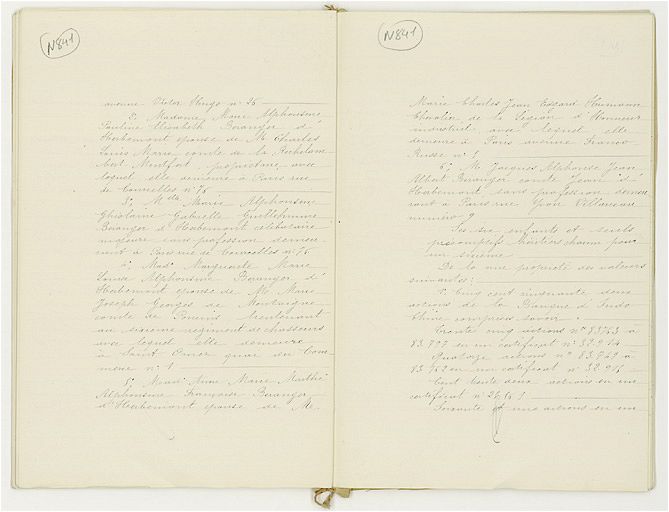 N841
avenue Victor Hugo n° 26
2° Madame Marie Alphonsine
Pauline Elisabeth Béranger d'
Herbemont épouse de Mr Charles
Louis Marie comte de la Rochelam
bert Montfort propriétaire, avec
lequel elle demeure à Paris rue
de Courcelles n° 76
3° Melle Marie Alphonsine
Ghislaine Gabrielle Guillelmine
Béranger d'Herbemont célibataire
majeure sans profession demeu
rant à Paris rue de Courcelles n° 76
Made Marguerite Marie
Louise Alphonsine Béranger d'
Herbemont épouse de Mr Marie
Joseph Georges de Montaigne
comte de lieutenant
au sixième régiment de chasseurs
avec lequel elle demeure
à Saint Omer quai du Com
merce n° 1
5° Made Anne Marie Marthe
Alphonsine Françoise Béranger
d'Herbemont épouse de Mr
N841
Marie Charles Jean Edgard Humann
Chevalier de la Légion d'Honneur
industriel, avec lequel elle
demeure à Paris avenue Franco
Russe n°
6° Mr Jacques Alphonse Jean
Albert Béranger comte Jean d'
Herbemont sans profession demeu
rant à Paris rue Yvon Villarceau
numéro 9
Ses six enfants et seuls
présomptifs héritiers chacun pour
un sixième
De la nue propriété des valeurs
suivantes:
1° Cinq cent deux
actions de la Banque d'Indo
Chine comprises savoir:
Trente cinq actions n° 83763 à
83.797 en un certificat n° 32.914
Quatorze actions n° 83.749 à
83.762 en un certificat n°
Cent trente deux actions en un
certificat n°
Soixante et une actions en un